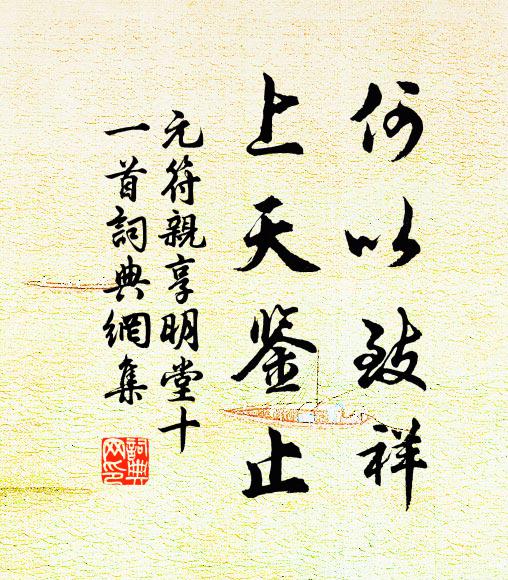 何以致祥
上天鉴止
元符親享明堂十
一首詞典網集
詞典
网印